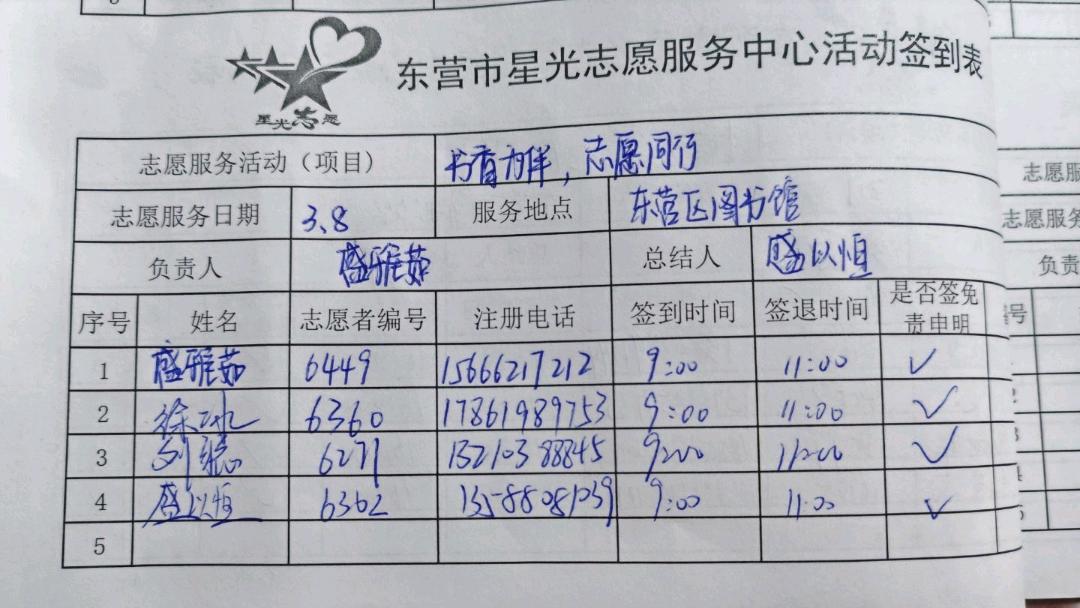 星光志愿
东营市星光志愿服务中心活动签到表
志愿服务活动（项目） 书香为伴，志愿同行
志愿服务日期 3.8 服务地点 东营区图书馆
负责人 盛雅茹 总结人 盛以恒
序号 姓名 志愿者编号 注册电话 签到时间 签退时间 是否签免责申明
1 盛雅茹 6449 15666217212 9:00 11:00 ✓
2 徐冰 6360 17861989753 9:00 11:00 ✓
3 刘 6271 13210388845 9:00 11:00 ✓
4 盛以恒 6362 13588081039 9:00 11:00 ✓
5
志愿服
志愿服务
负责
号